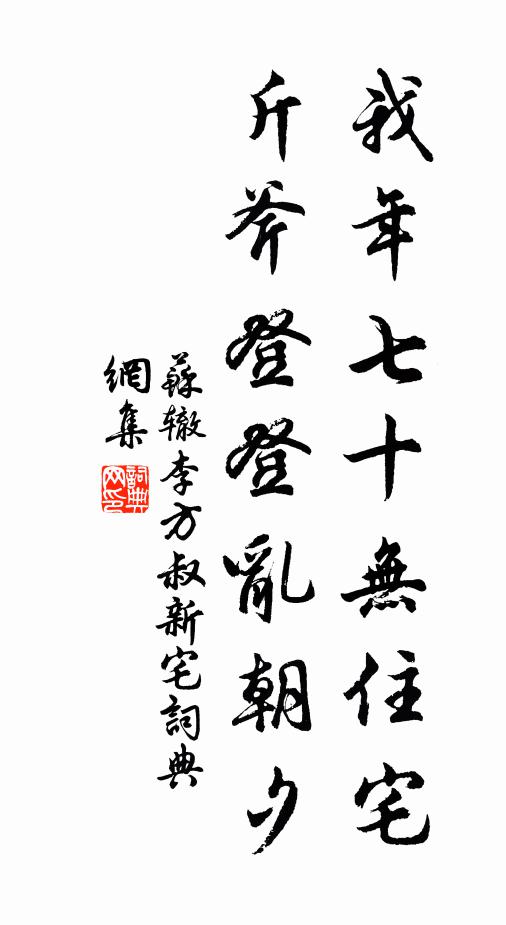 我年七十無住宅
斤斧登登亂朝夕
蘇辙李方叔新宅詞典
網集
詞典网印